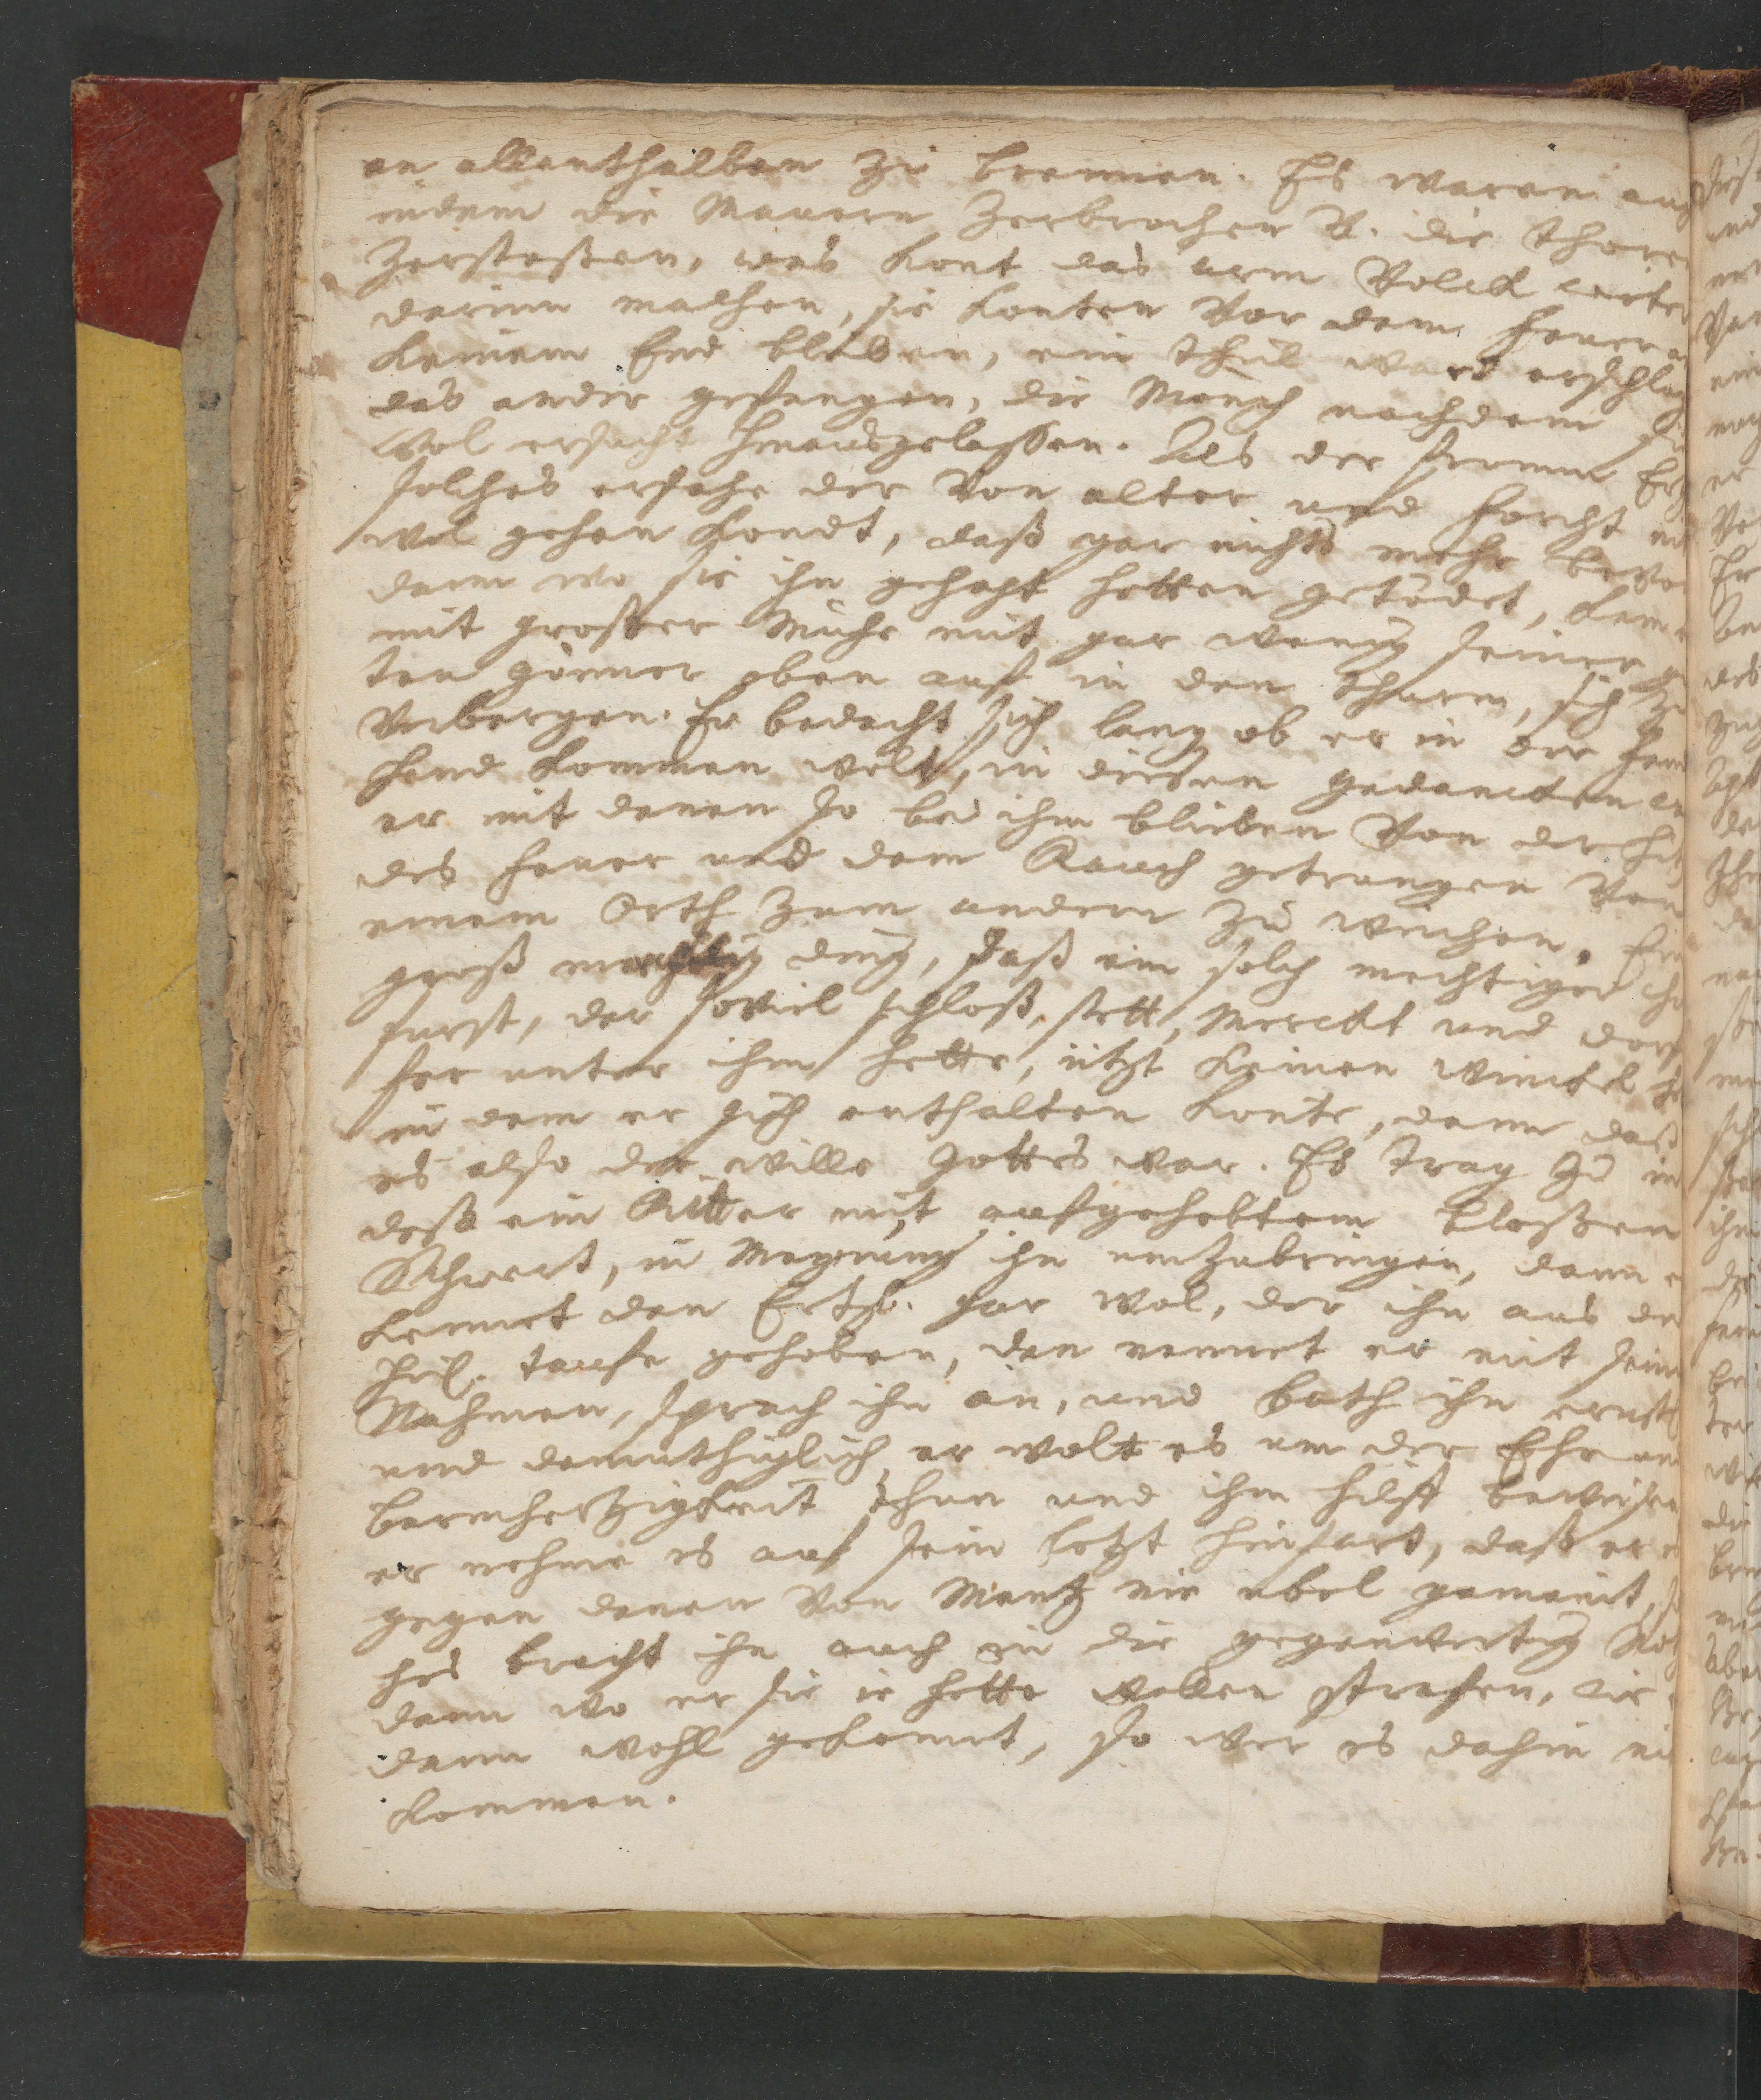 an allenthalben zu brennen. Es waren auch
indem die Mauern zerbrochen v. die Thoren
zerstossen, was kont das arm Volck weiter
darinn machen, sie konten vor dem Feuer a
keinem End bleiben, ein theil ward erschlag
das ander gefangen, die Mönch nachdem sie
wol ersucht hinausgelassen. Als der fromm Ertz
solches ersahe der von alter und forcht nit
wol gehen kondt, daß gar nichts mehr bevo
dann wo sie ihn gehapt hetten getödet, kam e
mit grosser Mühe mit gar wenig seiner gu
ten gönner oben auf in den Thurm, sich zu
verbergen. Er bedacht sich lang ob er in der feind
hand kommen wolt, in diesen gedancken
er mit denen so bei ihm blieben von der hitz
des feuer und dem Rauch getrangen von
einem Orth zum andern zu weichen. Ein
groß ding, daß ein solch mechtiger
furst, der soviel schloß, stett, Merckt und dorf
fer unter ihm hette, itzt keinen winckel he
in dem er sich enthalten konte, dann daß
es also der wille Gottes war. Es trug zu in
dess ein Ritter mit aufgehebtem blossen
Schwert, in Meynung ihn umzubringen, dann e
kennet den Ertzb. gar wol, der ihn aus der
heil. taufe gehoben, den nennet er mit seinem
Nahmen, sprach ihn an, und bath ihn ernstl
und demuthiglich er wolt es um der Ehr un
barmhertzigkeit thun und ihm hilff beweisen
er nehme es auf sein letzt hinfart, daß er e
gegen denen von Mentz nie ubel gemeint, s
hes bracht ihn auch in die gegenwertig Noth
dann wo er sie ie hette wollen strafen, wie e
dann wohl gekonnt, so wer es dahin nit
kommen.